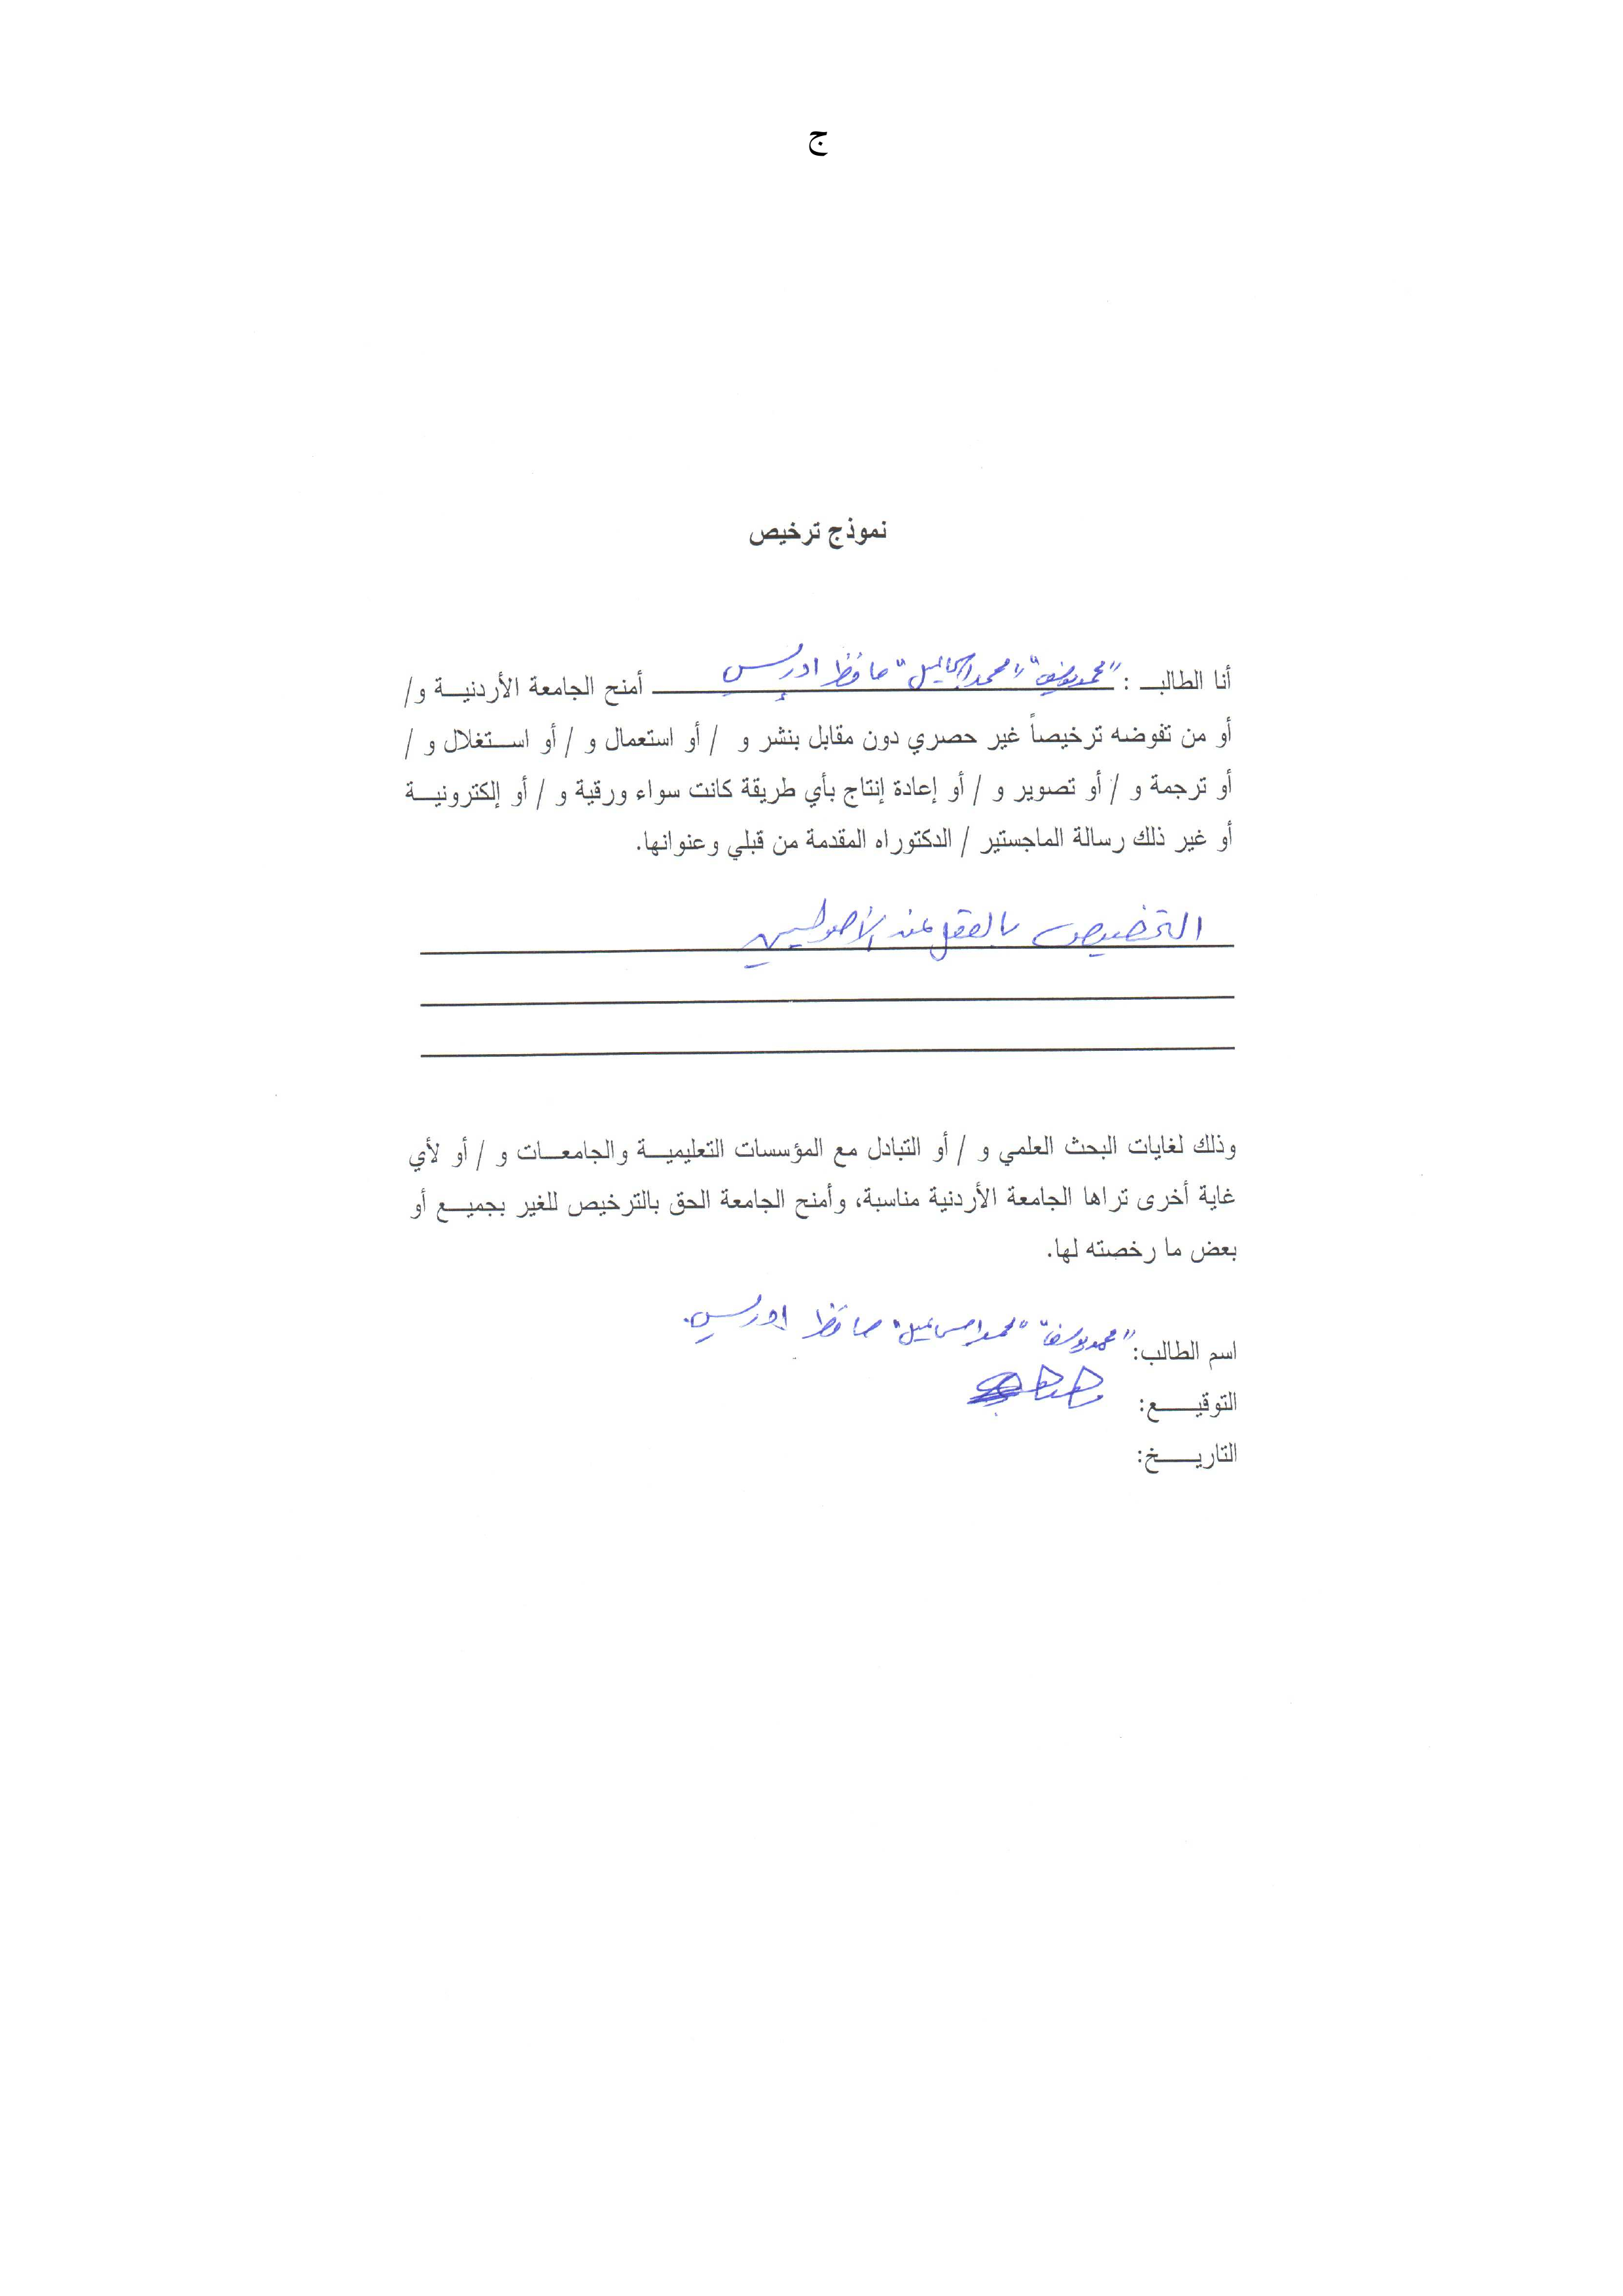 ج
نموذج ترخيص
أنا الطالب : "محمد يوسف" "محمد إسماعيل" حافظ إدريس أمنح الجامعة الأردنية و/
أو من تفوضه ترخيصاً غير حصري دون مقابل بنشر و / أو استعمال و / أو استغلال و /
أو ترجمة و / أو تصوير و / أو إعادة إنتاج بأي طريقة كانت سواء ورقية و / أو إلكترونية
أو غير ذلك رسالة الماجستير / الدكتوراه المقدمة من قبلي وعنوانها.
التخصيص بالعقل عند الأصوليين
وذلك لغايات البحث العلمي و / أو التبادل مع المؤسسات التعليمية والجامعات و / أو لأي
غاية أخرى تراها الجامعة الأردنية مناسبة، وأمنح الجامعة الحق بالترخيص للغير بجميع أو
بعض ما رخصته لها.
اسم الطالب: "محمد يوسف" "محمد إسماعيل" حافظ إدريس.
التوقيع:
التاريخ: